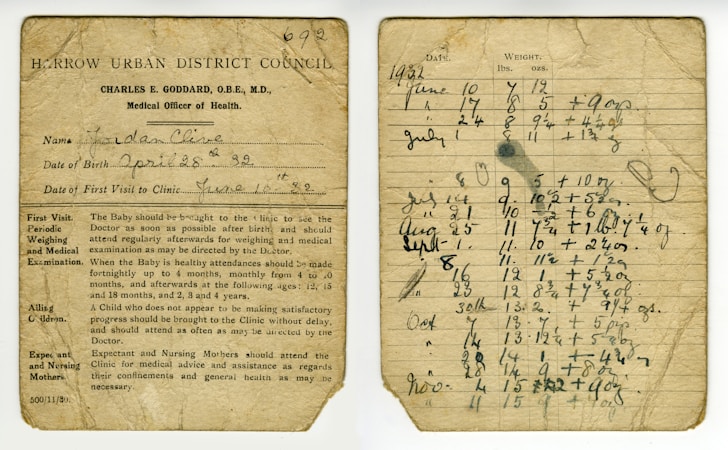 692
HARROW URBAN DISTRICT COUNCIL
CHARLES E. GODDARD, O.B.E., M.D.,
Medical Officer of Health.
Name Jordan Clive
Date of Birth April 28th 32
Date of First Visit to Clinic June 10th 32
First Visit. The Baby should be brought to the Clinic to see the
Periodic Doctor as soon as possible after birth, and should
Weighing attend regularly afterwards for weighing and medical
and Medical examination as may be directed by the Doctor.
Examination. When the Baby is healthy attendances should be made
fortnightly up to 4 months, monthly from 4 to 10
months, and afterwards at the following ages: 12, 15
and 18 months, and 2, 3 and 4 years.
Ailing A Child who does not appear to be making satisfactory
Children. progress should be brought to the Clinic without delay,
and should attend as often as may be directed by the
Doctor.
Expectant Expectant and Nursing Mothers should attend the
and Nursing Clinic for medical advice and assistance as regards
Mothers their confinements and general health as may be
necessary.
500/11/30.
DATE. WEIGHT.
lbs. ozs.
1932
June 10 7 12
" 17 8 5 + 9 ozs.
" 24 8 9¼ + 4¼
July 1 8 11 + 1¾
" 8 9 5 + 10 oz.
July 14 9 10½ + 5
" 21 10 + 6
Aug 25 11 7¾ + 1 lb 7¼ oz
Sept 1. 11. 10 + 2¼ oz.
8 11. 11½ + 1½
16 12 1 + 5½
" 23 12 8¾ + 7¾
30th 13. 2. + 9¼ ozs.
Oct 7 13. 7 + 5 ozs
" 14 13. 12¼ + 5
" 20 14 1 + 4¾
" 28 14 9 + 8 oz.
Nov. 4 15 2 + 9 oz.
" 11 15 9 +